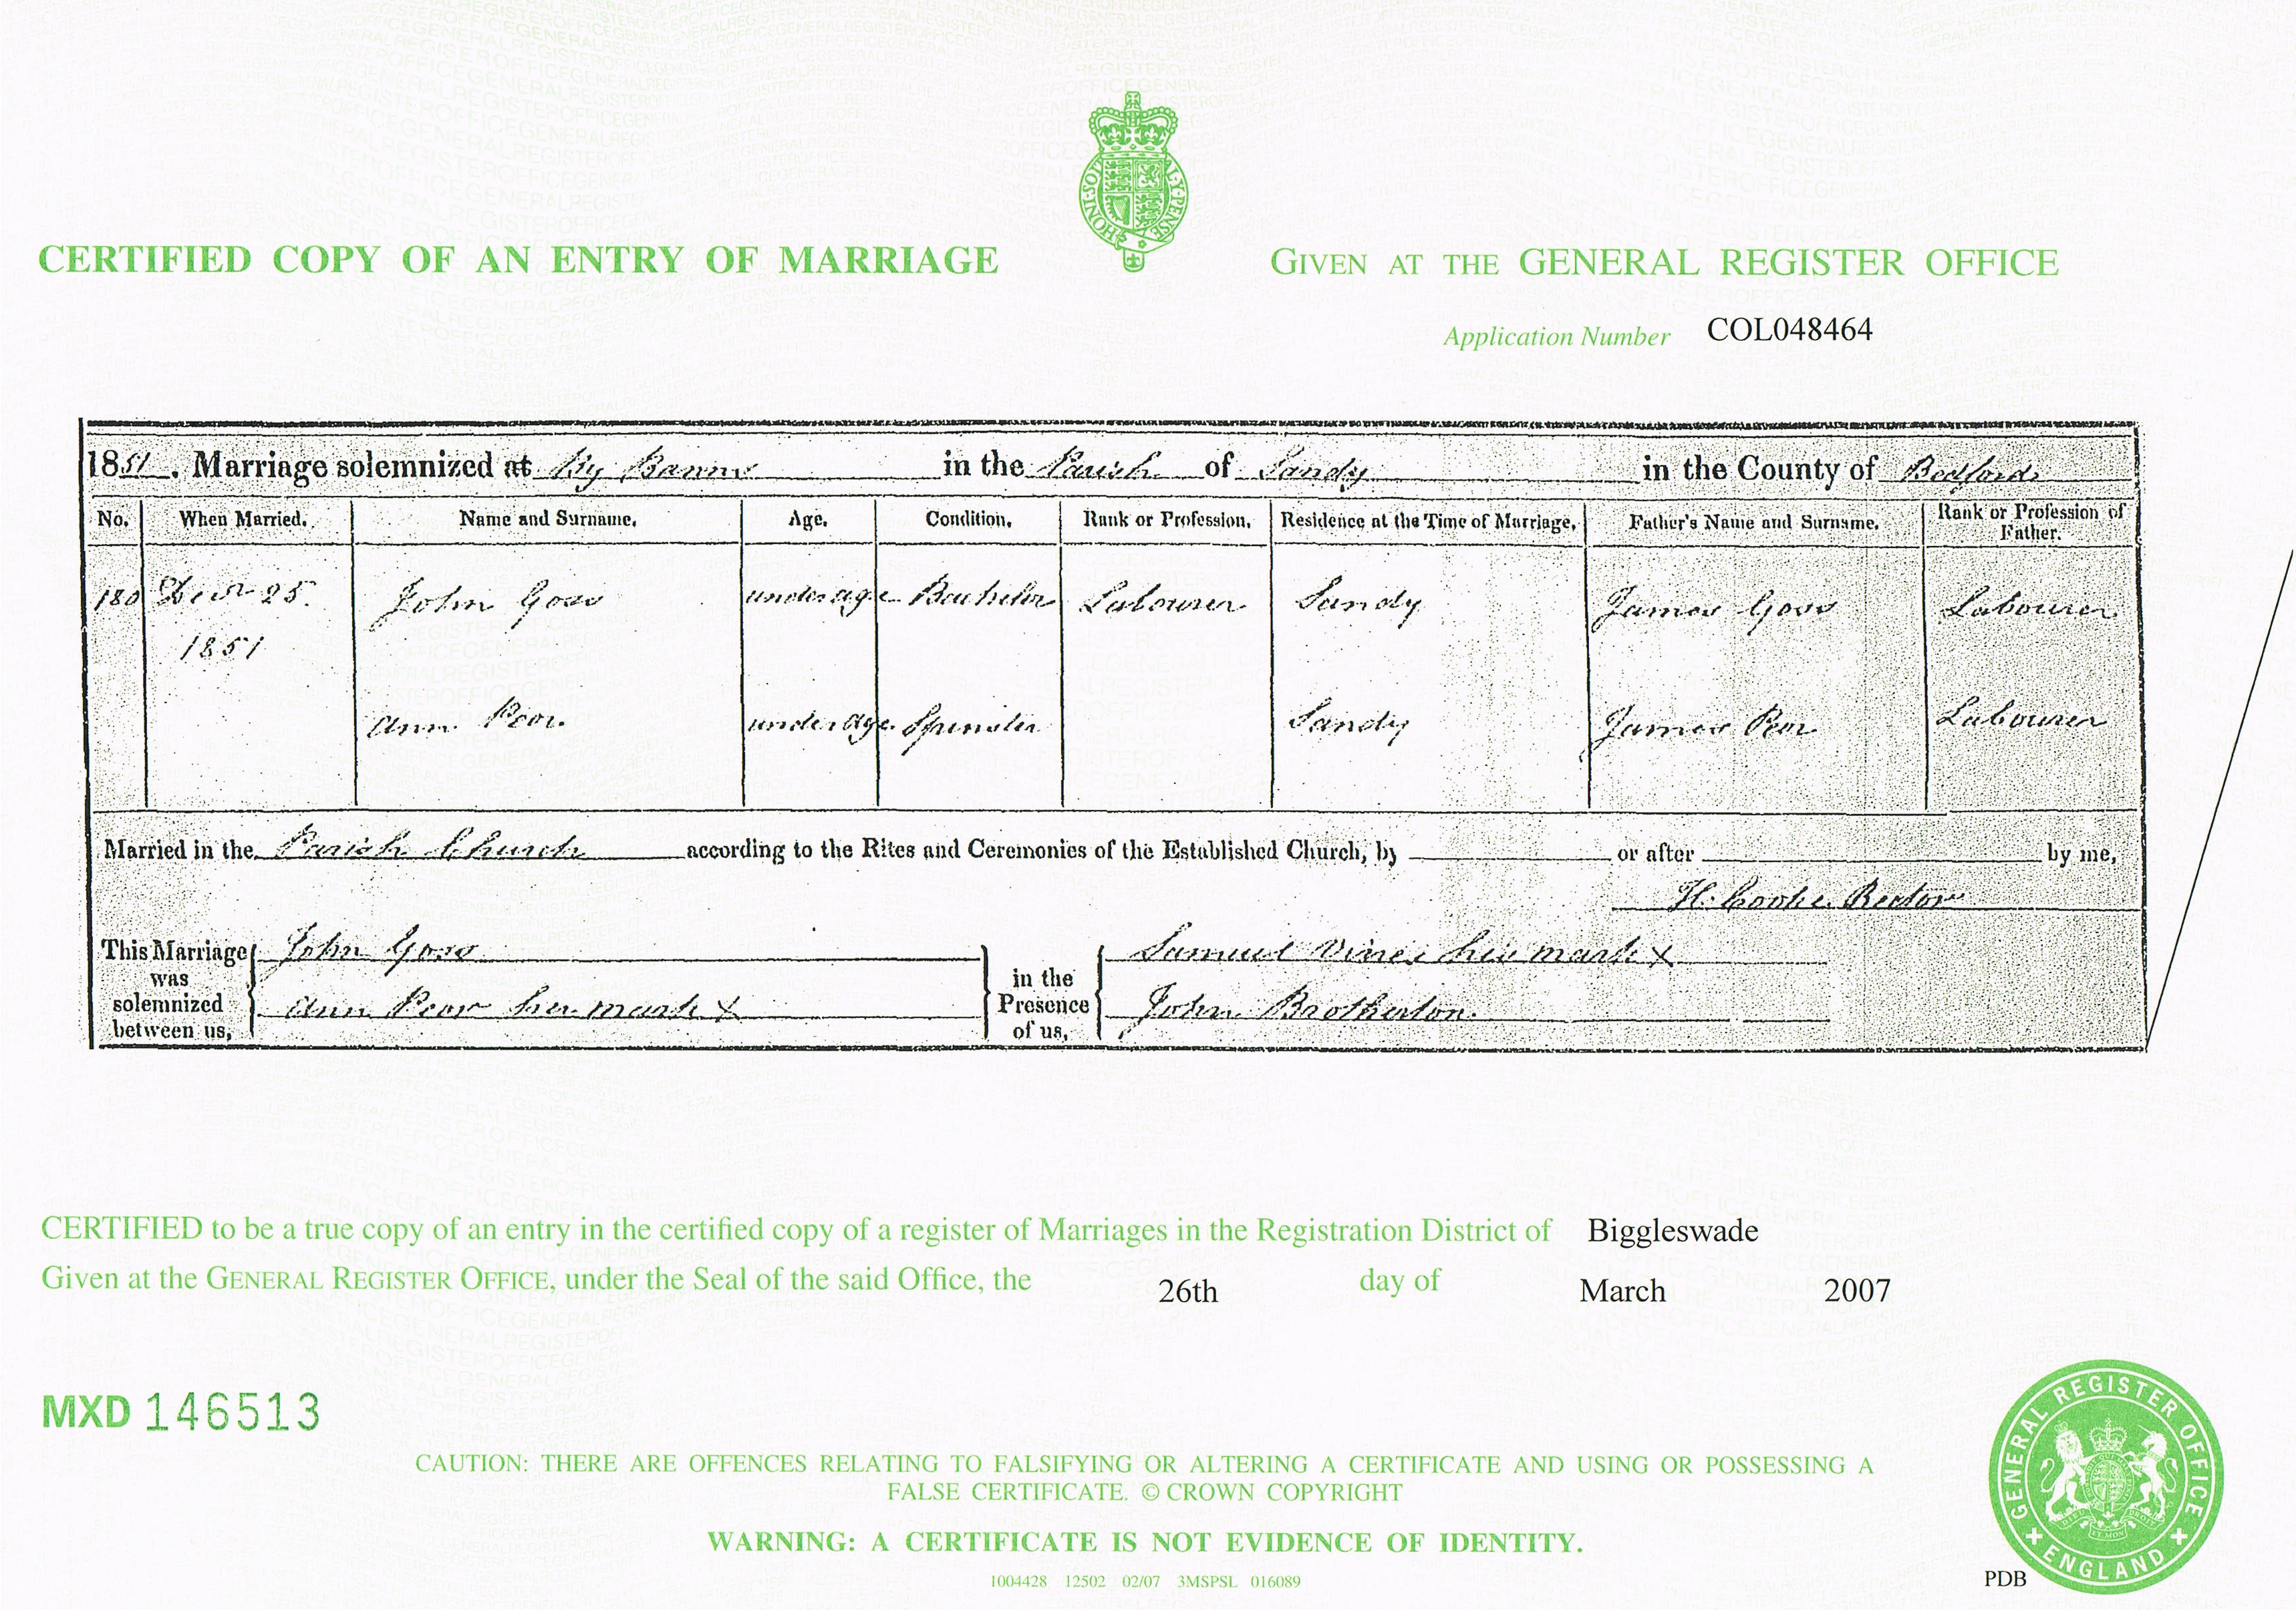 CERTIFIED COPY OF AN ENTRY OF MARRIAGE
GIVEN AT THE GENERAL REGISTER OFFICE
Application Number COL048464
1851. Marriage solemnized at By Banns in the Parish of Sandy in the County of Bedford
No. When Married. Name and Surname. Age. Condition. Rank or Profession. Residence at the Time of Marriage. Father's Name and Surname. Rank or Profession of Father.
180 Decr 25. John Goss under age Bachelor Labourer Sandy James Goss Labourer
1851
Ann under age Spinster Sandy James Labourer
Married in the Parish Church according to the Rites and Ceremonies of the Established Church, by or after by me,
H. Cooke Rector
This Marriage was solemnized between us, John Goss
Ann her mark X
in the Presence of us, Samuel Vines his mark X
John Brotherton.
CERTIFIED to be a true copy of an entry in the certified copy of a register of Marriages in the Registration District of Biggleswade
Given at the GENERAL REGISTER OFFICE, under the Seal of the said Office, the 26th day of March 2007
MXD 146513
CAUTION: THERE ARE OFFENCES RELATING TO FALSIFYING OR ALTERING A CERTIFICATE AND USING OR POSSESSING A
FALSE CERTIFICATE. © CROWN COPYRIGHT
WARNING: A CERTIFICATE IS NOT EVIDENCE OF IDENTITY.
1004428 12502 02/07 3MSPSL 016089
PDB
GENERAL REGISTER OFFICE
ENGLAND